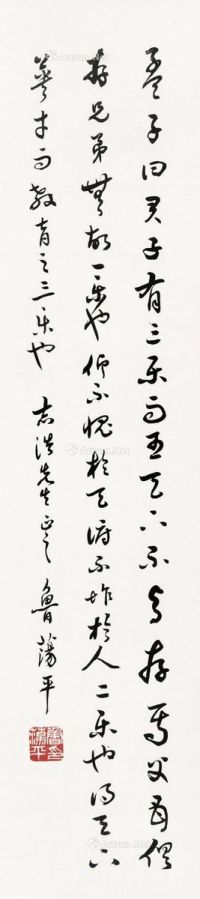 孟子曰君子有三乐而王天下不与存焉父母俱
存兄弟无故一乐也仰不愧於天俯不怍於人二乐也得天下
英才而教育之三乐也 志浩先生正之 鲁荡平